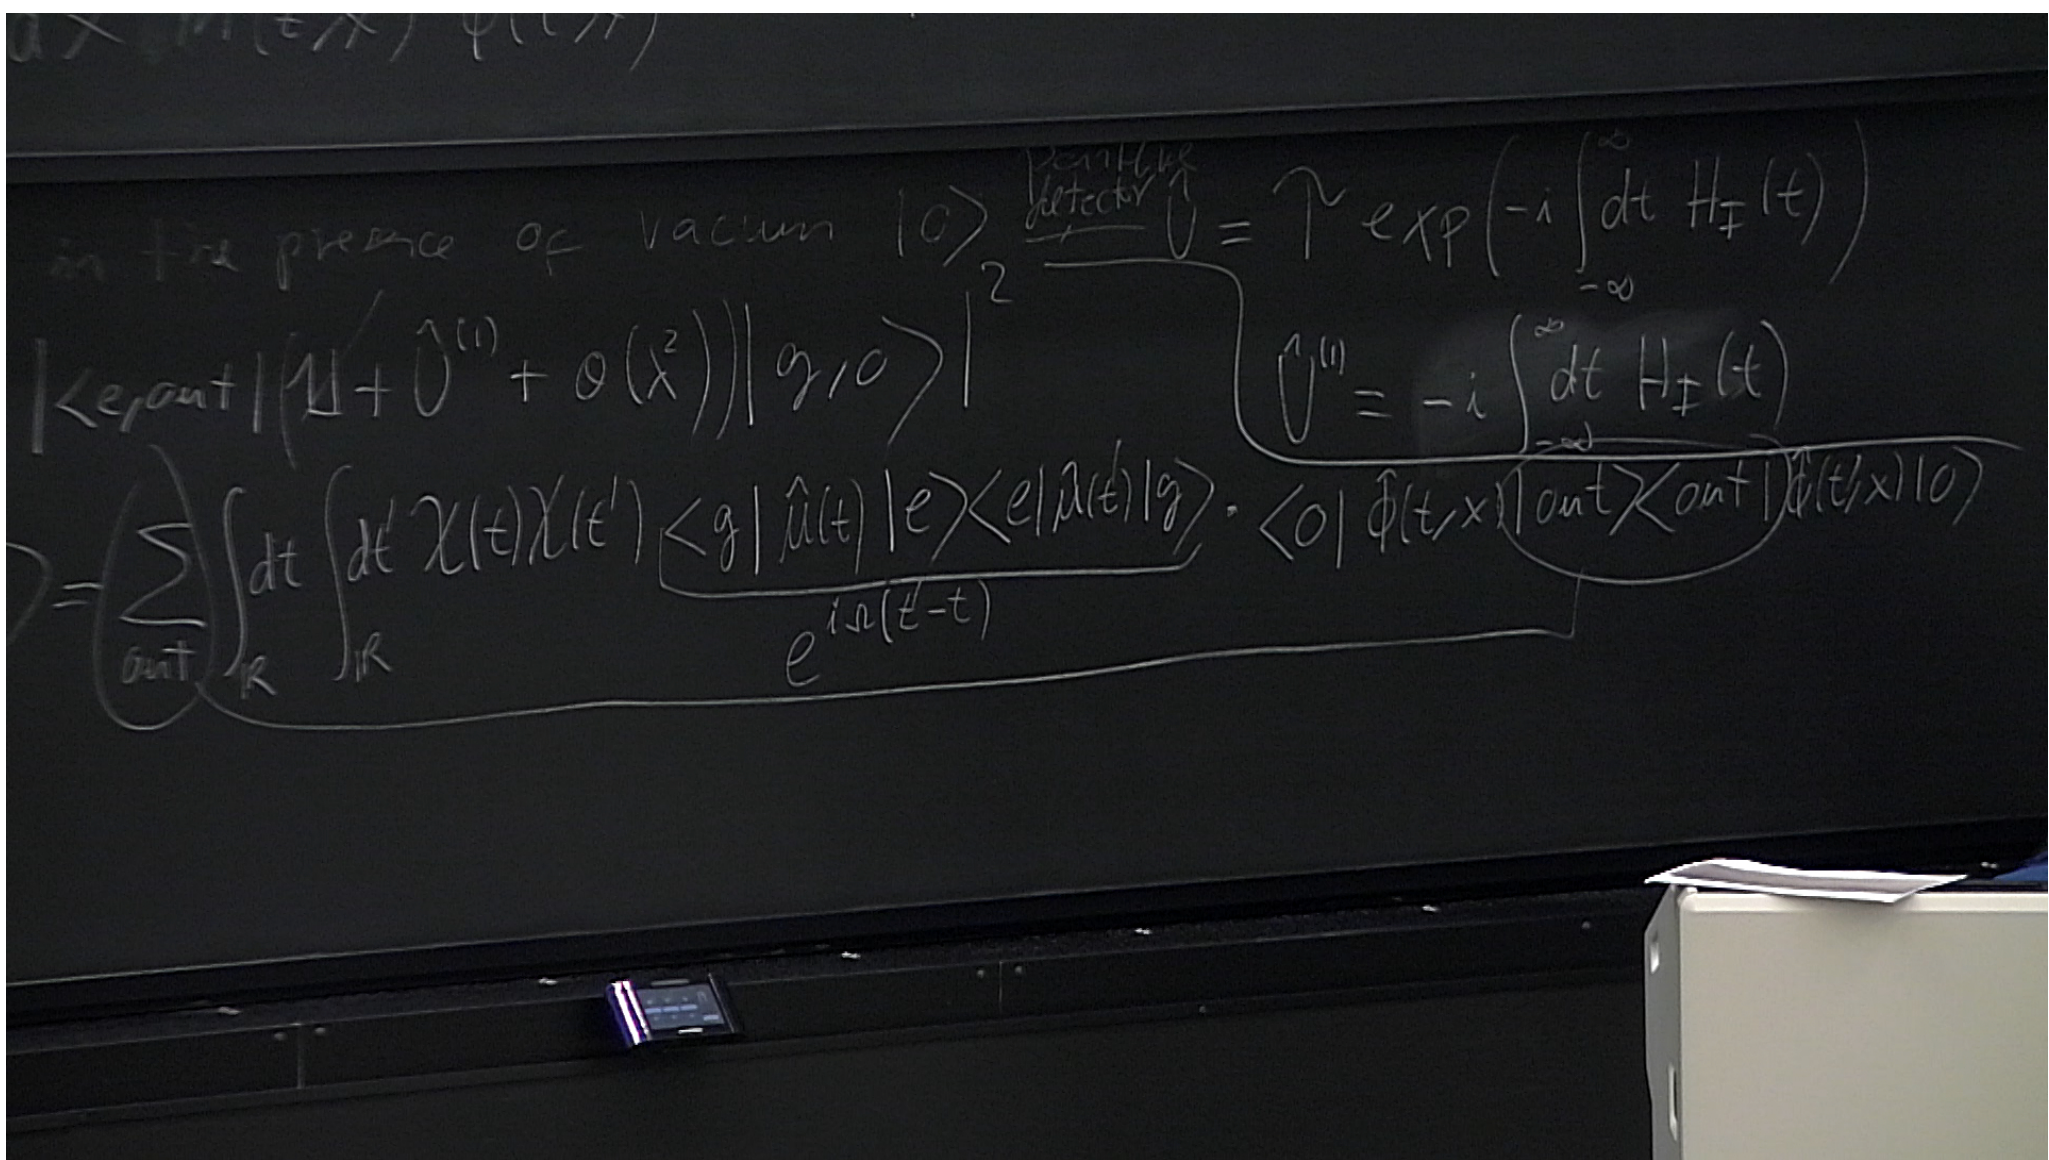 dx m(t,x) φ(t,x)
in the presence of vacuum |0⟩
pointlike
detector
Û = T exp(-i ∫_{-∞}^{∞} dt H_I(t))
|⟨e,out|(𝟙 + Û^{(1)} + O(λ^2))|g,0⟩|^2
Û^{(1)} = -i ∫_{-∞}^{∞} dt H_I(t)
⟩ = ∑_{out} ∫_ℝ dt ∫_ℝ dt' χ(t)χ(t') ⟨g|μ̂(t)|e⟩⟨e|μ̂(t')|g⟩ · ⟨0|ϕ̂(t,x)|out⟩⟨out|ϕ̂(t',x)|0⟩
e^{iΩ(t'-t)}